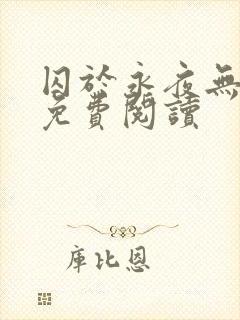 囚於永夜無
免費閱讀
庫比恩